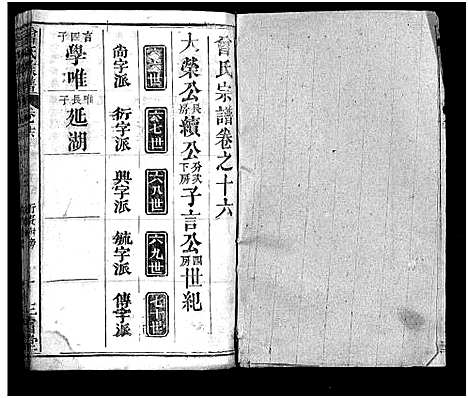 曾氏宗譜卷之十六
大榮公長房續公分弍下房子言公四房世紀
六六世 六七世 六八世 六九世 七十世
尚字派 衍字派 興字派 毓字派 傳字派
言四子 學唯
唯長子 延湖